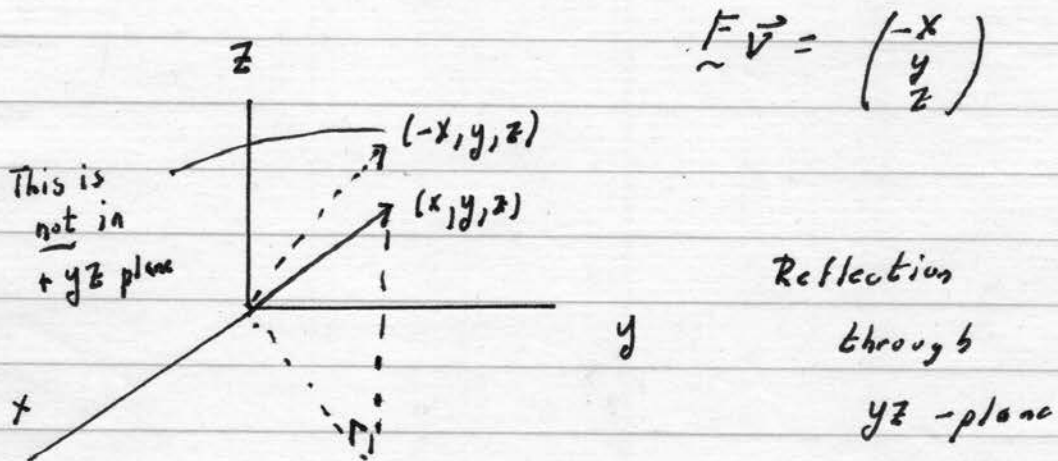 F v⃗ = (-x
y
z)
z
(-x, y, z)
This is
not in
+ yz plane
(x, y, z)
Reflection
through
yz -plane
y
x